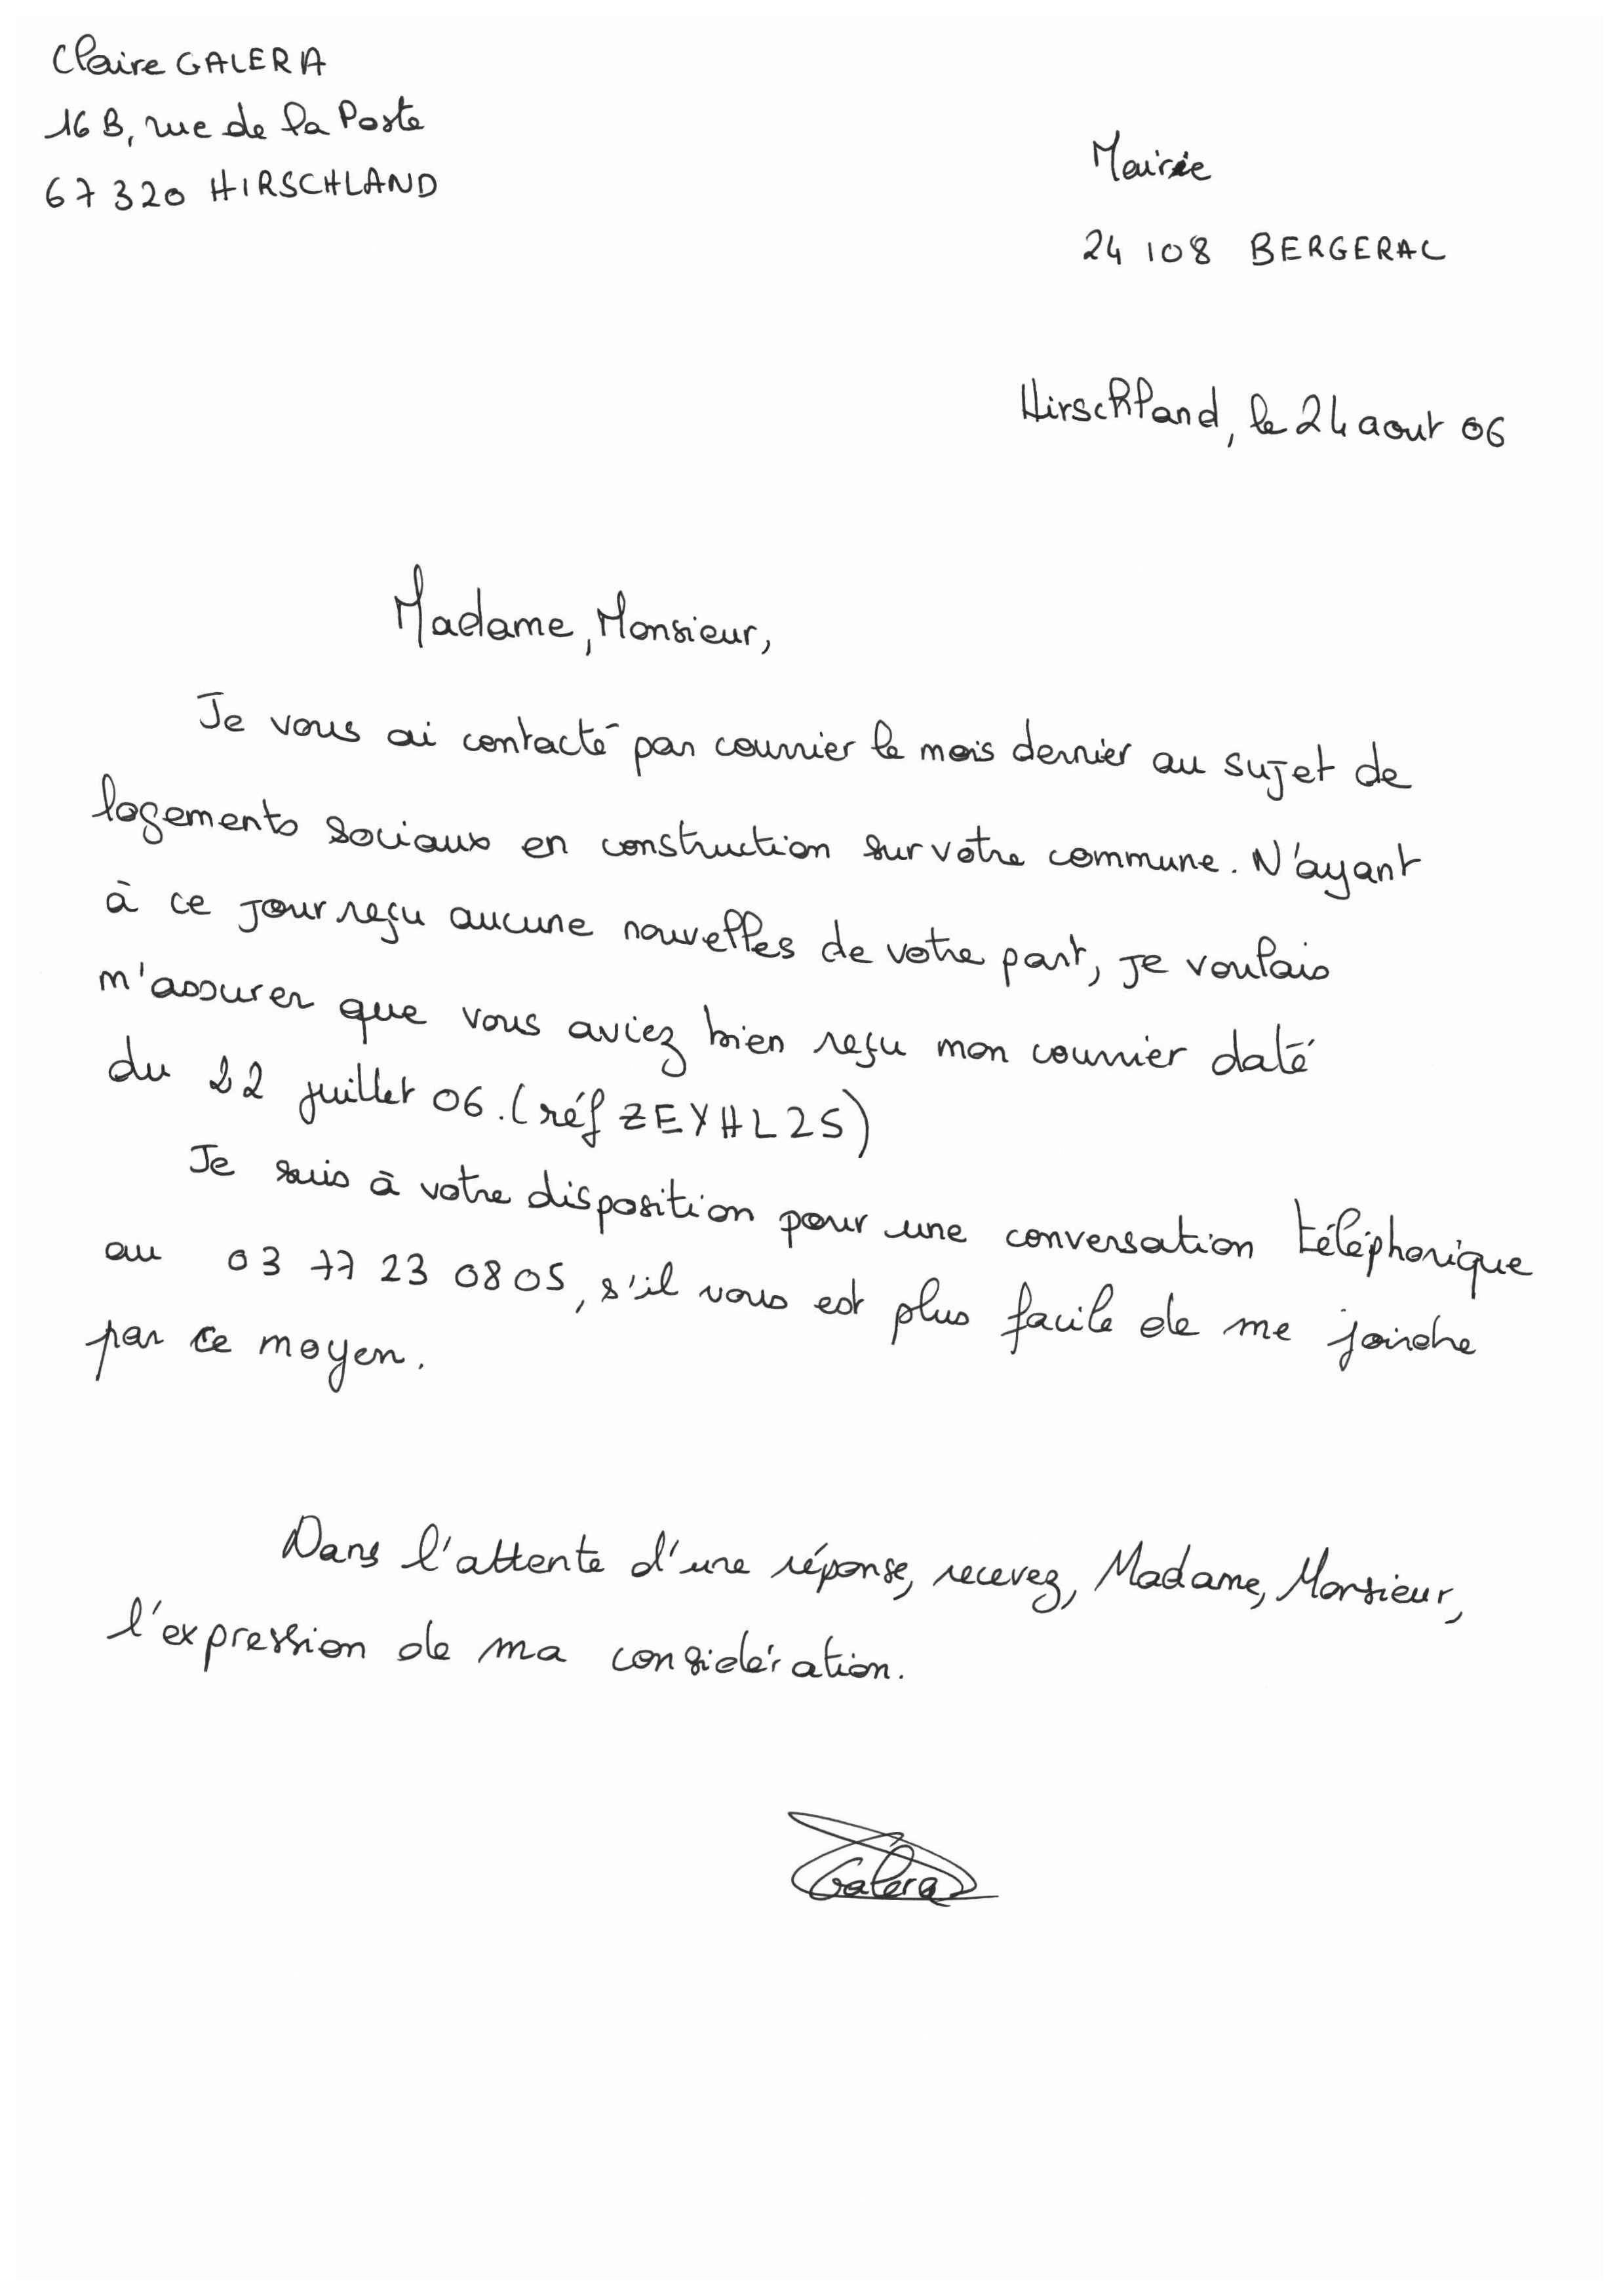 Claire GALERA
16 B, rue de la Poste
67 320 HIRSCHLAND
Mairie
24 108 BERGERAC
Hirschland, le 24 aout 06
Madame, Monsieur,
Je vous ai contacté par courrier le mois dernier au sujet de
logements sociaux en construction sur votre commune. N'ayant
à ce jour reçu aucune nouvelles de votre part, je voulais
m'assurer que vous aviez bien reçu mon courrier daté
du 22 juillet 06. (réf ZEYHL2S)
Je suis à votre disposition pour une conversation téléphonique
au 03 77 23 08 05, s'il vous est plus facile de me joindre
par ce moyen.
Dans l'attente d'une réponse, recevez, Madame, Monsieur,
l'expression de ma considération.
Galera